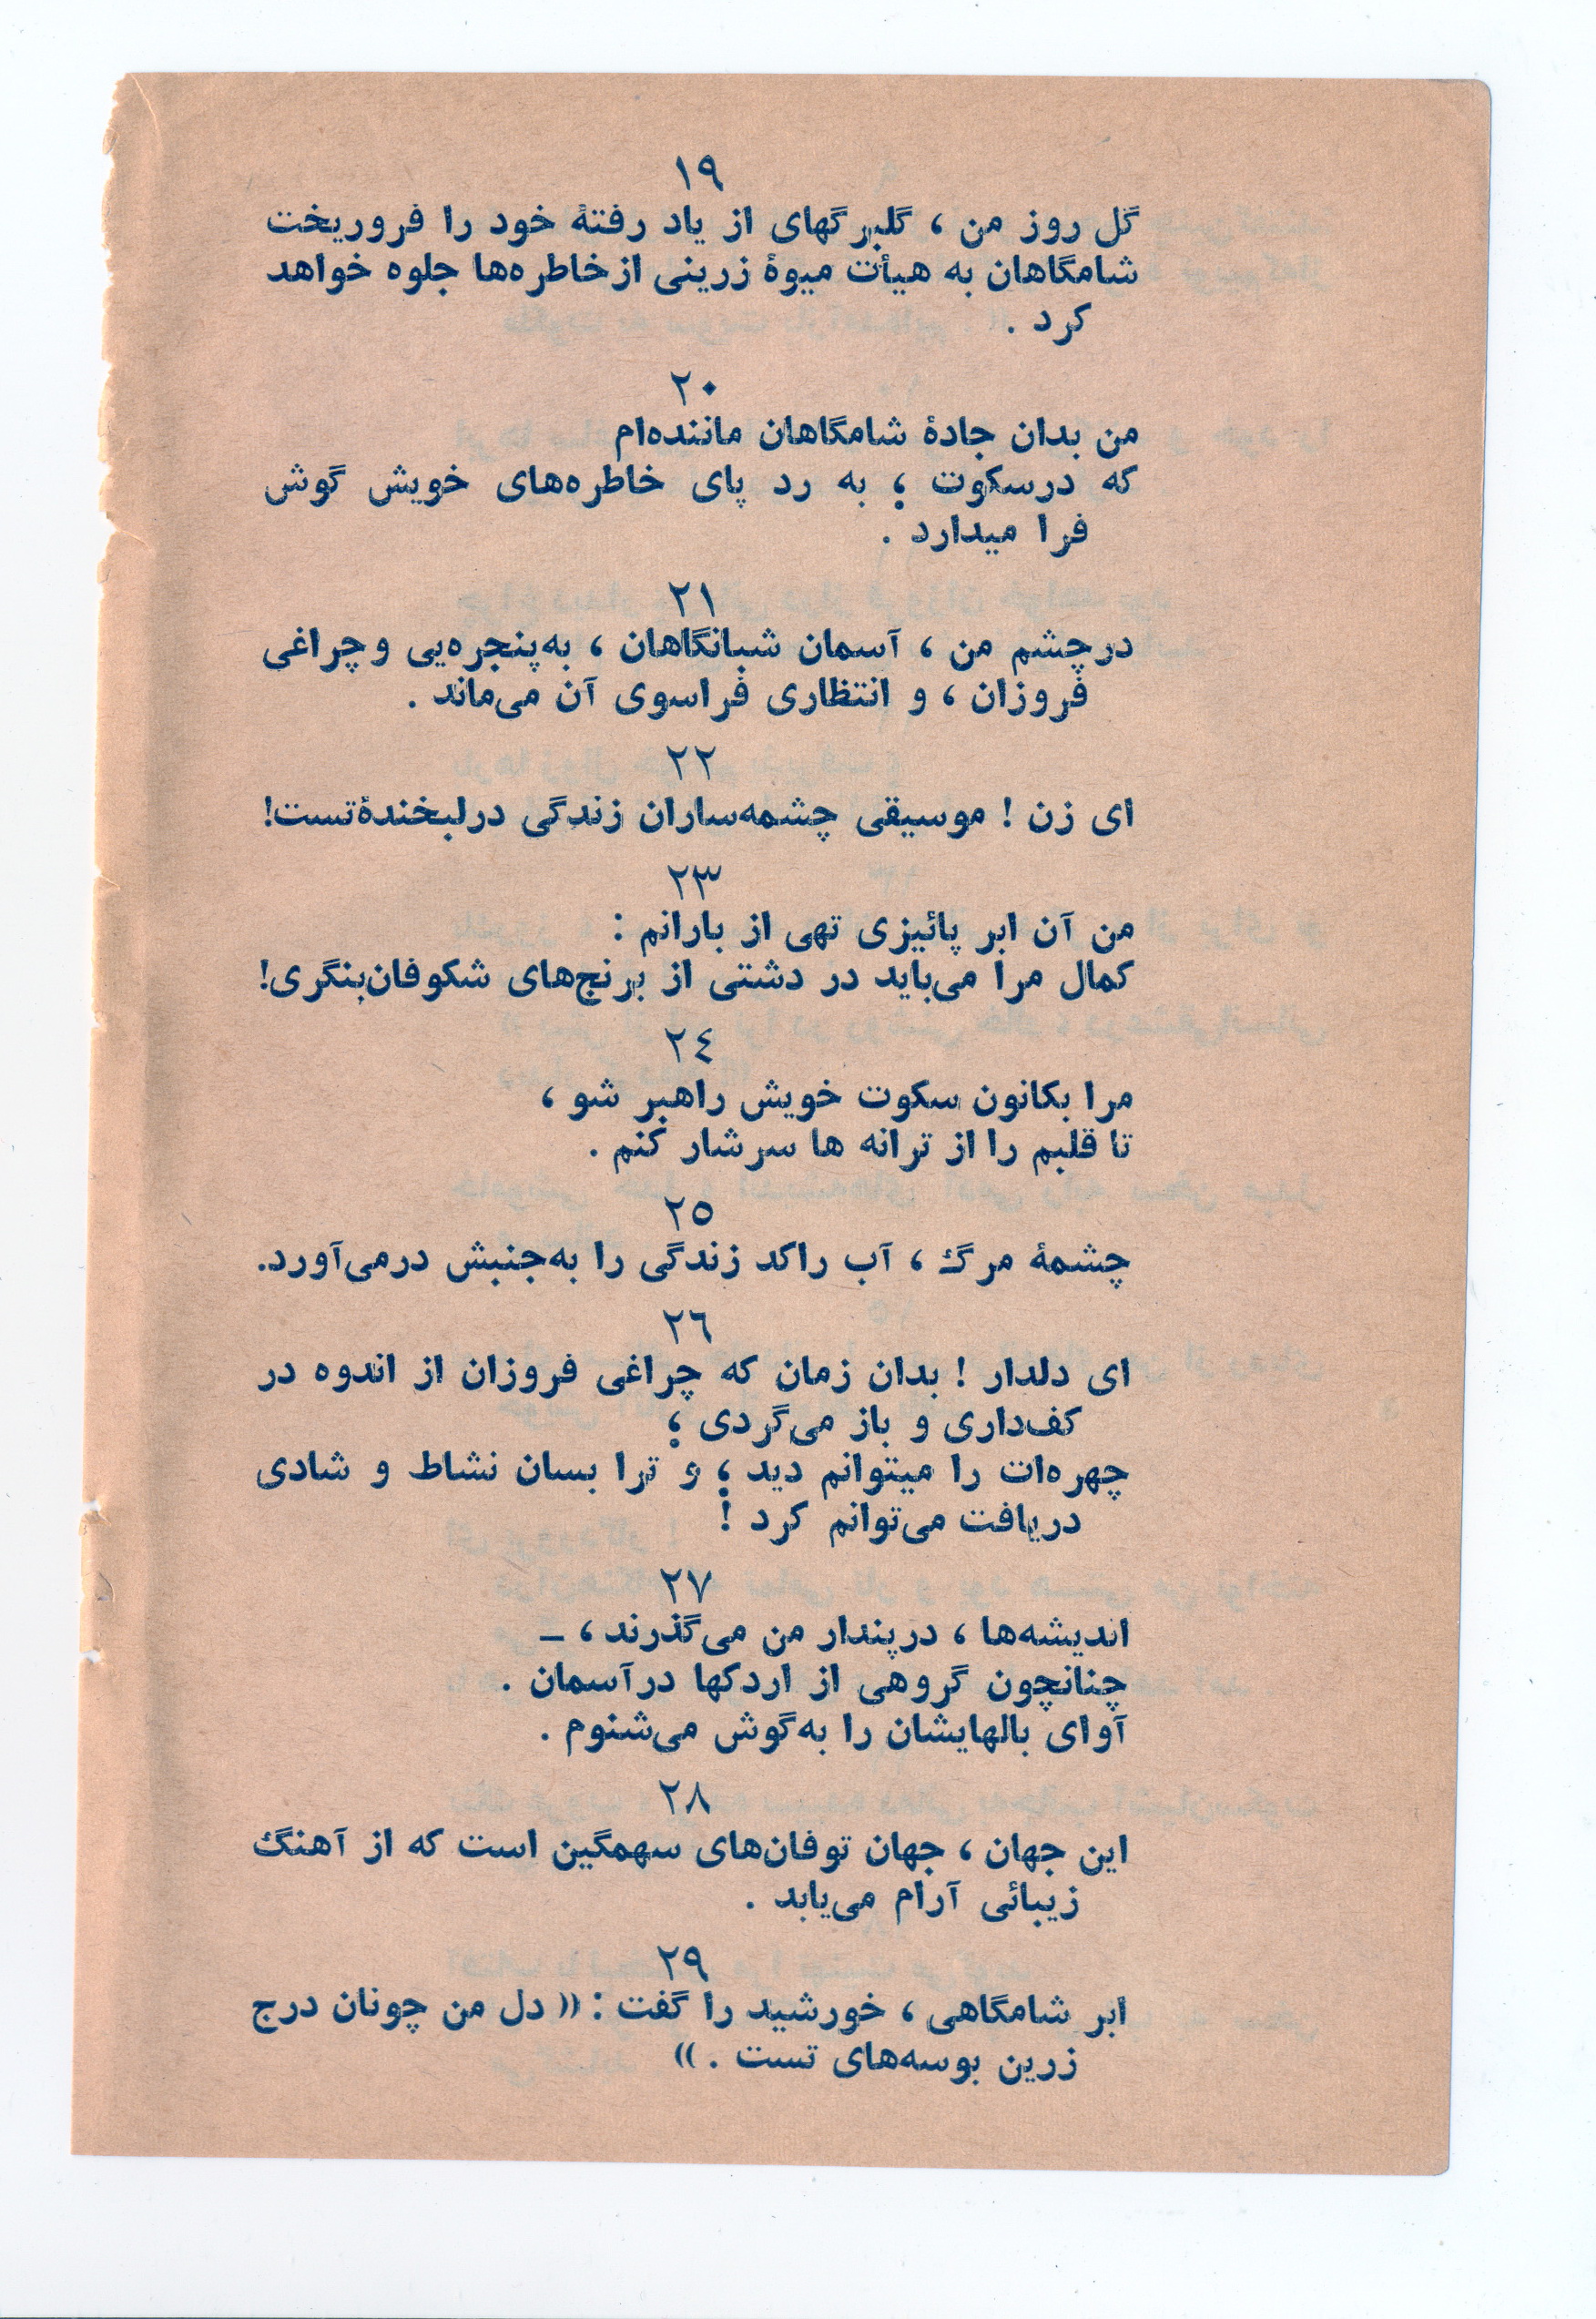 ١٩
گل روز من ، گلبرگهای از یاد رفتهٔ خود را فروریخت
شامگاهان به هیأت میوهٔ زرینی از خاطره‌ها جلوه خواهد
کرد .
٢٠
من بدان جادهٔ شامگاهان ماننده‌ام
که درسکوت ؛ به رد پای خاطره‌های خویش گوش
فرا میدارد .
٢١
درچشم من ، آسمان شبانگاهان ، به‌پنجره‌یی و چراغی
فروزان ، و انتظاری فراسوی آن می‌ماند .
٢٢
ای زن ! موسیقی چشمه‌ساران زندگی درلبخندهٔ تست!
٢٣
من آن ابر پائیزی تهی از بارانم :
کمال مرا می‌باید در دشتی از برنج‌های شکوفان‌بنگری!
٢٤
مرا بکانون سکوت خویش راهبر شو ،
تا قلبم را از ترانه ها سرشار کنم .
٢٥
چشمهٔ مرگ ، آب راکد زندگی را به‌جنبش درمی‌آورد.
٢٦
ای دلدار ! بدان زمان که چراغی فروزان از اندوه در
کف‌داری و باز می‌گردی ؛
چهره‌ات را میتوانم دید ؛ و ترا بسان نشاط و شادی
دریافت می‌توانم کرد !
٢٧
اندیشه‌ها ، درپندار من می‌گذرند ، ــ
چنانچون گروهی از اردکها درآسمان .
آوای بالهایشان را به‌گوش می‌شنوم .
٢٨
این جهان ، جهان توفان‌های سهمگین است که از آهنگ
زیبائی آرام می‌یابد .
٢٩
ابر شامگاهی ، خورشید را گفت : (( دل من چونان درج
زرین بوسه‌های تست . ))